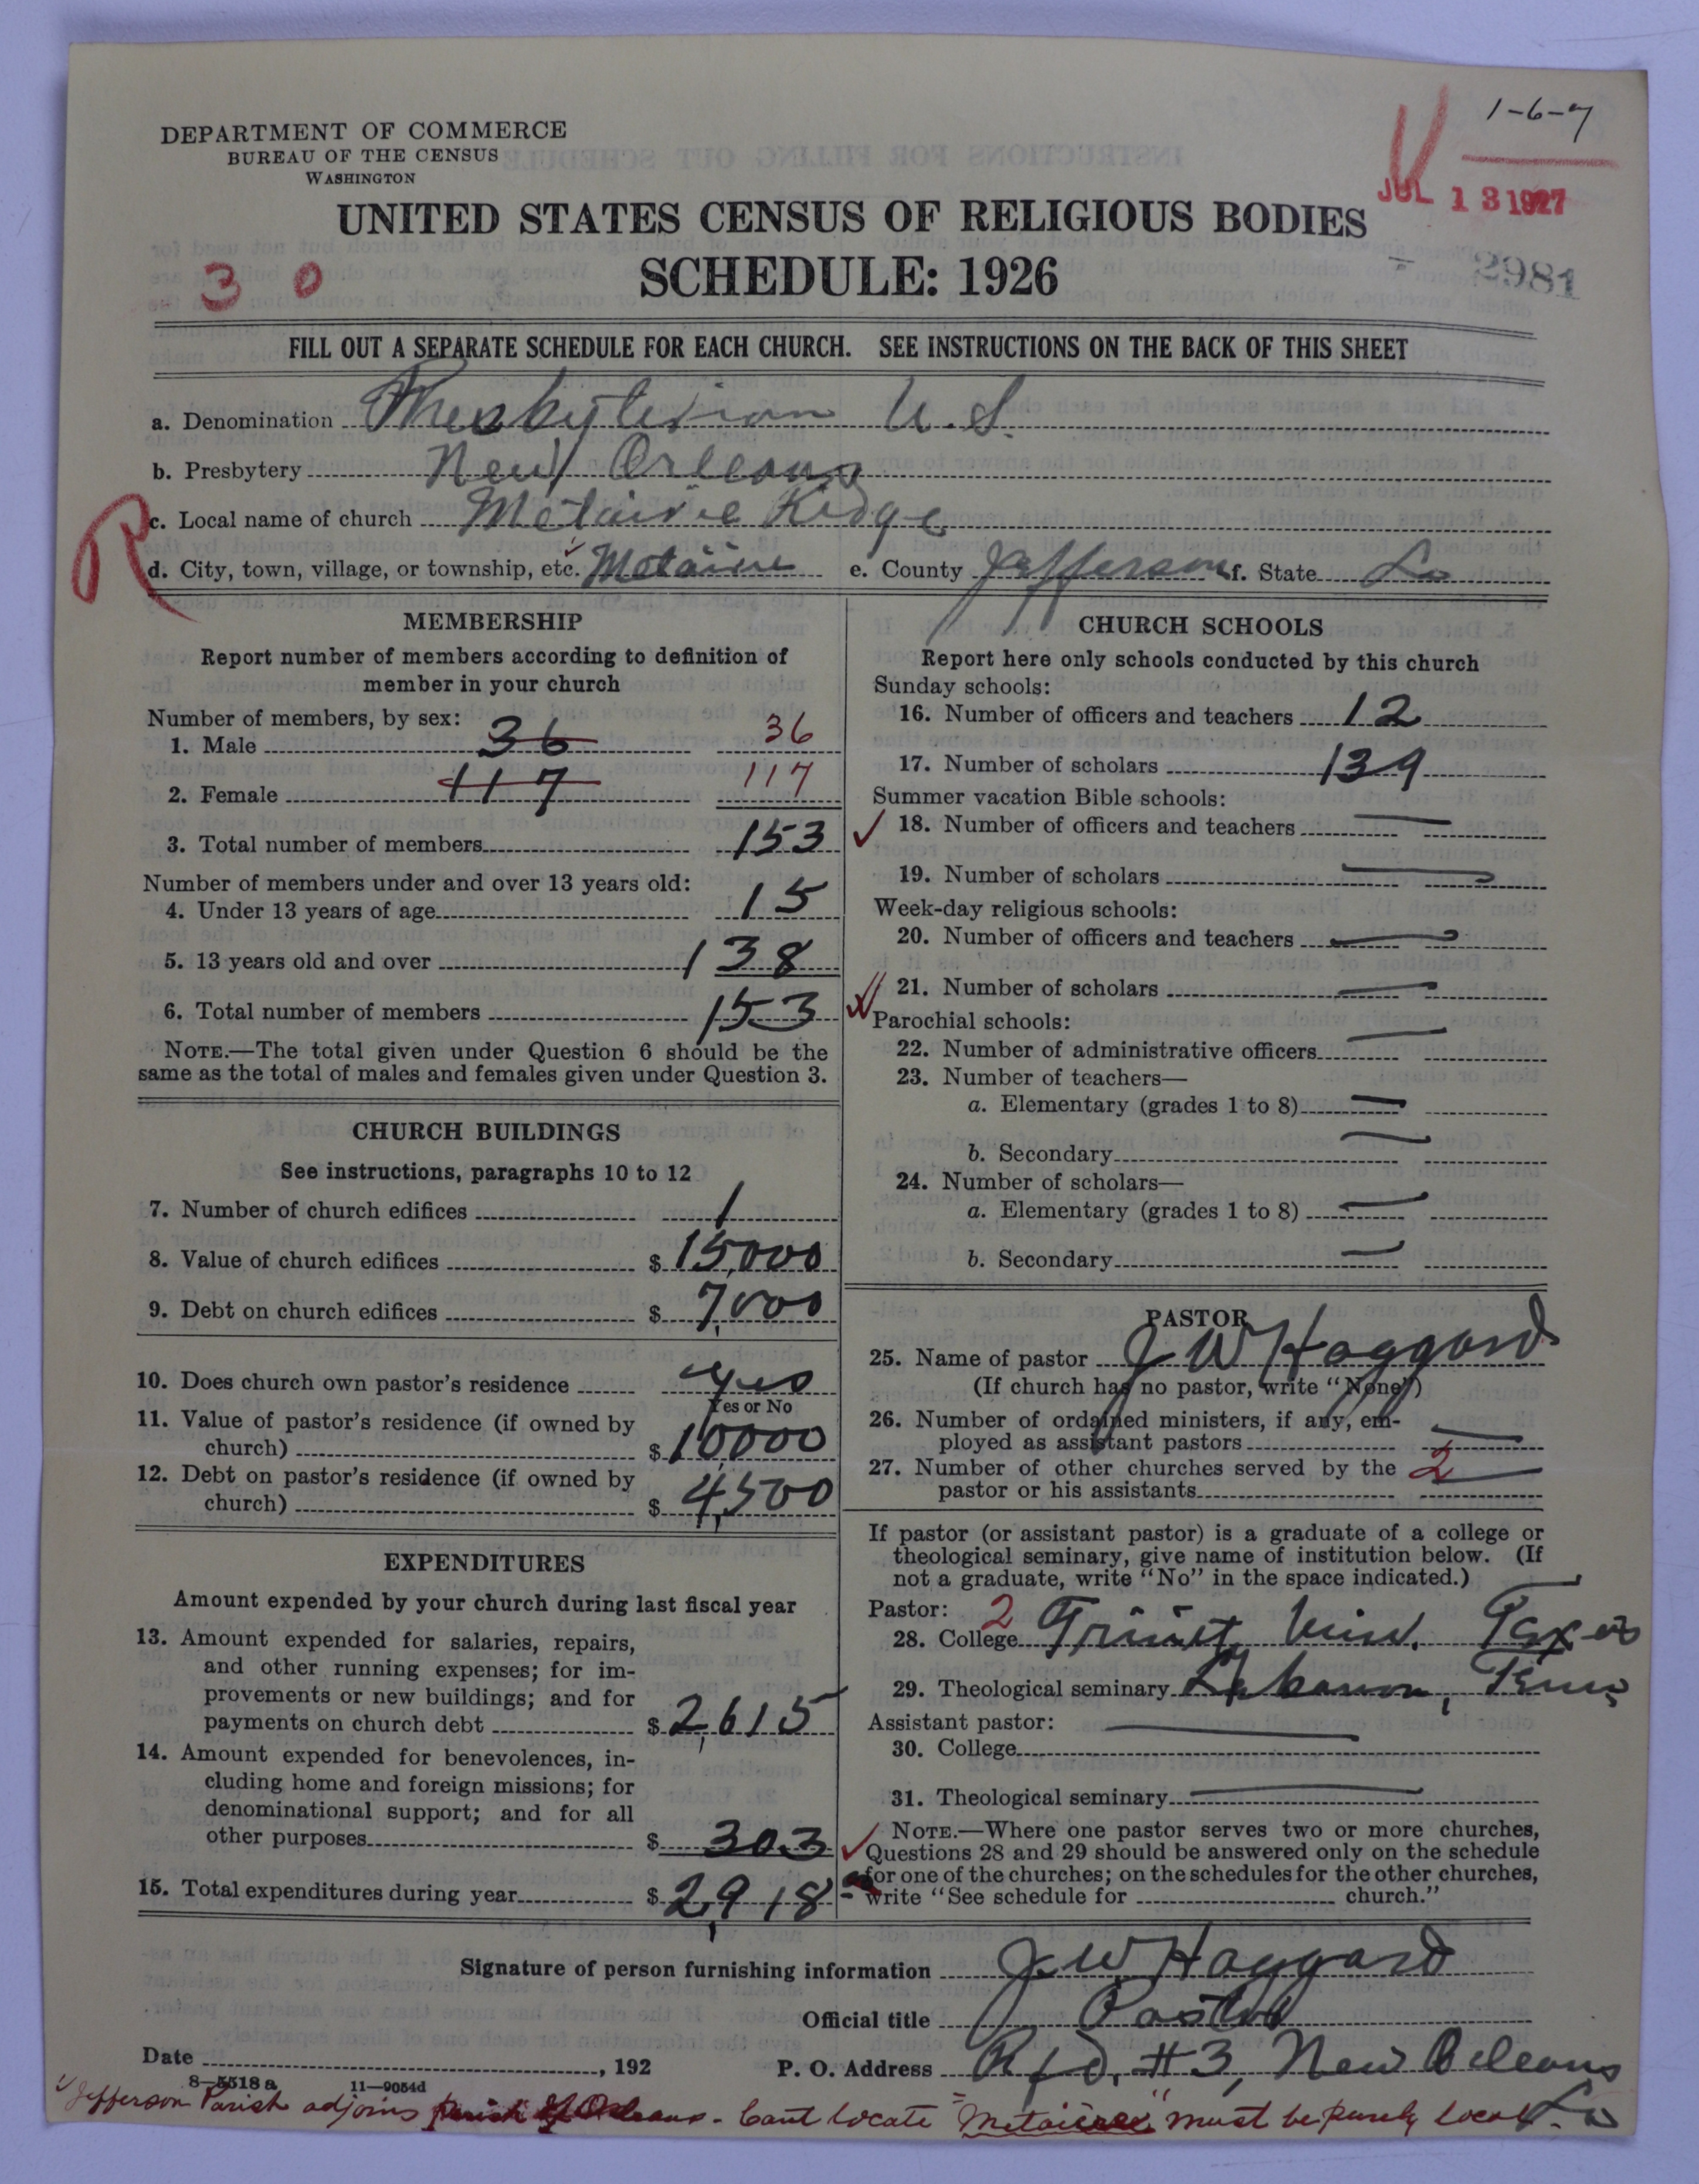 1-6-7
DEPARTMENT OF COMMERCE
BUREAU OF THE CENSUS
WASHINGTON
JUL 13 1927
UNITED STATES CENSUS OF RELIGIOUS BODIES
SCHEDULE: 1926
2981
3 0
FILL OUT A SEPARATE SCHEDULE FOR EACH CHURCH. SEE INSTRUCTIONS ON THE BACK OF THIS SHEET
a. Denomination Presbyterian U.S.
b. Presbytery New Orleans
R
c. Local name of church Metairie Ridge
d. City, town, village, or township, etc. Metairie e. County Jefferson f. State La
MEMBERSHIP
Report number of members according to definition of
member in your church
Number of members, by sex:
1. Male 36 36
2. Female 117 117
3. Total number of members 153
Number of members under and over 13 years old:
4. Under 13 years of age 15
5. 13 years old and over 138
6. Total number of members 153
NOTE.—The total given under Question 6 should be the
same as the total of males and females given under Question 3.
CHURCH BUILDINGS
See instructions, paragraphs 10 to 12
7. Number of church edifices 1
8. Value of church edifices $ 15,000
9. Debt on church edifices $ 7,000
10. Does church own pastor's residence yes
Yes or No
11. Value of pastor's residence (if owned by
church) $ 10000
12. Debt on pastor's residence (if owned by
church) $ 4,500
EXPENDITURES
Amount expended by your church during last fiscal year
13. Amount expended for salaries, repairs,
and other running expenses; for im-
provements or new buildings; and for
payments on church debt $ 2,615
14. Amount expended for benevolences, in-
cluding home and foreign missions; for
denominational support; and for all
other purposes $ 303
15. Total expenditures during year $ 2,918
CHURCH SCHOOLS
Report here only schools conducted by this church
Sunday schools:
16. Number of officers and teachers 12
17. Number of scholars 139
Summer vacation Bible schools:
18. Number of officers and teachers —
19. Number of scholars —
Week-day religious schools:
20. Number of officers and teachers —
21. Number of scholars —
Parochial schools:
22. Number of administrative officers —
23. Number of teachers—
a. Elementary (grades 1 to 8) —
b. Secondary —
24. Number of scholars—
a. Elementary (grades 1 to 8) —
b. Secondary —
PASTOR
25. Name of pastor J W Haggard
(If church has no pastor, write "None")
26. Number of ordained ministers, if any, em-
ployed as assistant pastors —
27. Number of other churches served by the 2 —
pastor or his assistants
If pastor (or assistant pastor) is a graduate of a college or
theological seminary, give name of institution below. (If
not a graduate, write "No" in the space indicated.)
Pastor: 2
28. College Trinity Univ. Texas
29. Theological seminary Lebanon, Tenn
Assistant pastor: —
30. College
31. Theological seminary —
NOTE.—Where one pastor serves two or more churches,
Questions 28 and 29 should be answered only on the schedule
for one of the churches; on the schedules for the other churches,
write "See schedule for church."
Signature of person furnishing information J. W. Haggard
Official title Pastor
Date , 192 P. O. Address Rfd. #3, New Orleans
La
8—5518 a 11—9054d
Jefferson Parish adjoins parish of Orleans - Cant locate "Metairie" must be purely local.